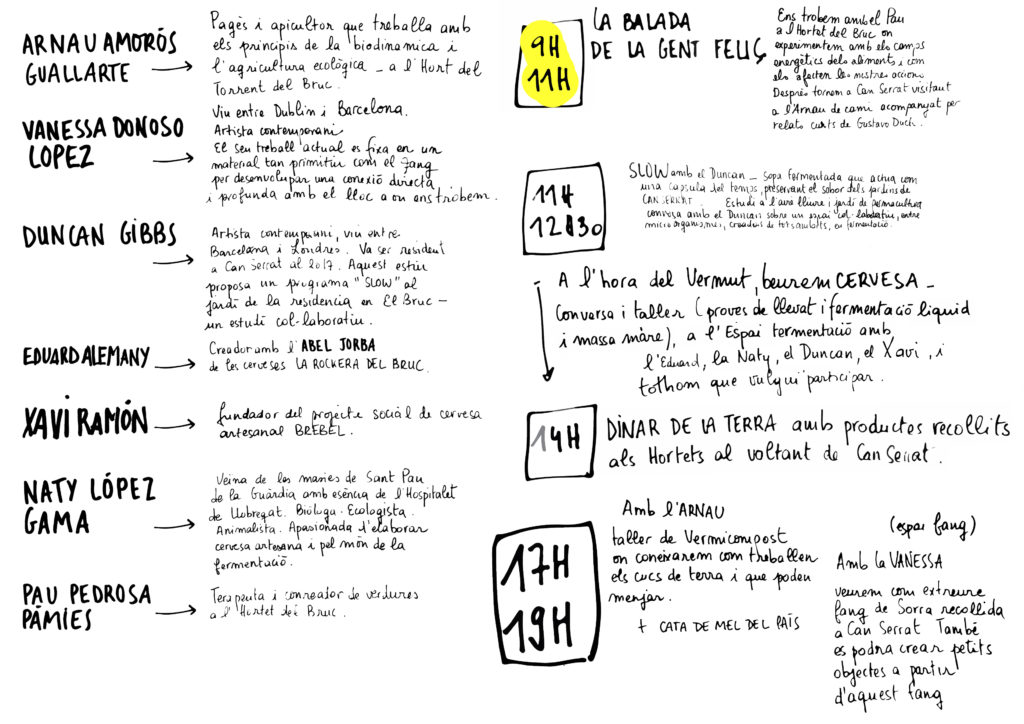 ARNAU AMORÓS
GUALLARTE
Pagès i apicultor que treballa amb
els principis de la biodinamica i
l'agricultura ecològica - a l'Hort del
Torrent del Bruc.
VANESSA DONOSO
LOPEZ
Viu entre Dublin i Barcelona.
Artista contemporani
El seu treball actual es fixa en un
material tan primitiu com el fang
per desenvolupar una conexió directa
i profunda amb el lloc a on ens trobem.
DUNCAN GIBBS
Artista contemporani, viu entre
Barcelona i Londres. Va ser resident
a Can Serrat al 2017. Aquest estiu
proposa un programa "SLOW" al
jardí de la residencia en El Bruc -
un estudi col·laboratiu.
EDUARD ALEMANY
Creador amb l'ABEL JORBA
de les cerveses LA ROCKERA DEL BRUC.
XAVI RAMÓN
fundador del projecte social de cervesa
artesanal BREBEL.
NATY LÓPEZ
GAMA
Veïna de les masies de Sant Pau
de la Guàrdia amb esència de l'Hospitalet
de Llobregat. Biòloga. Ecologista.
Animalista. Apasionada d'elaborar
cervesa artesana i pel món de la
fermentació.
PAU PEDROSA
PÀMIES
Terapeuta i conreador de verdures
a l'Hortet del Bruc.
9H
11H
LA BALADA
DE LA GENT FELIÇ
Ens trobem amb el Pau
a l'Hortet del Bruc on
experimentem amb els camps
energètics dels aliments, i com
els afecten les nostres accions
Després tornem a Can Serrat visitant
a l'Arnau de camí acompanyat per
relats curts de Gustavo Duch.
11H
12H30
SLOW amb el Duncan - Sopa fermentada que actua com
una capsula del temps, preservant el sabor dels jardins de
CAN SERRAT. Estudi a l'aire lliure i jardí de permacultura
conversa amb el Duncan sobre un espai col·laboratiu, entre
microorganismes, creadors de tots ambits, en fermentació.
- A l'hora del Vermut, beurem CERVESA -
Conversa i taller (proves de llevat i fermentació liquid
i massa màre), a l'Espai fermentació amb
l'Eduard, la Naty, el Duncan, el Xavi, i
tothom que vulgui participar.
14H
DINAR DE LA TERRA amb productes recollits
als Hortets al voltant de Can Serrat.
17H
19H
Amb l'ARNAU
taller de Vermicompost
on coneixarem com treballen
els cucs de terra i que poden
menjar.
+ CATA DE MEL DEL PAÍS
(espai fang)
Amb la VANESSA
veurem com extreure
fang de Sorra recollida
a Can Serrat També
es podra crear petits
objectes a partir
d'aquest fang